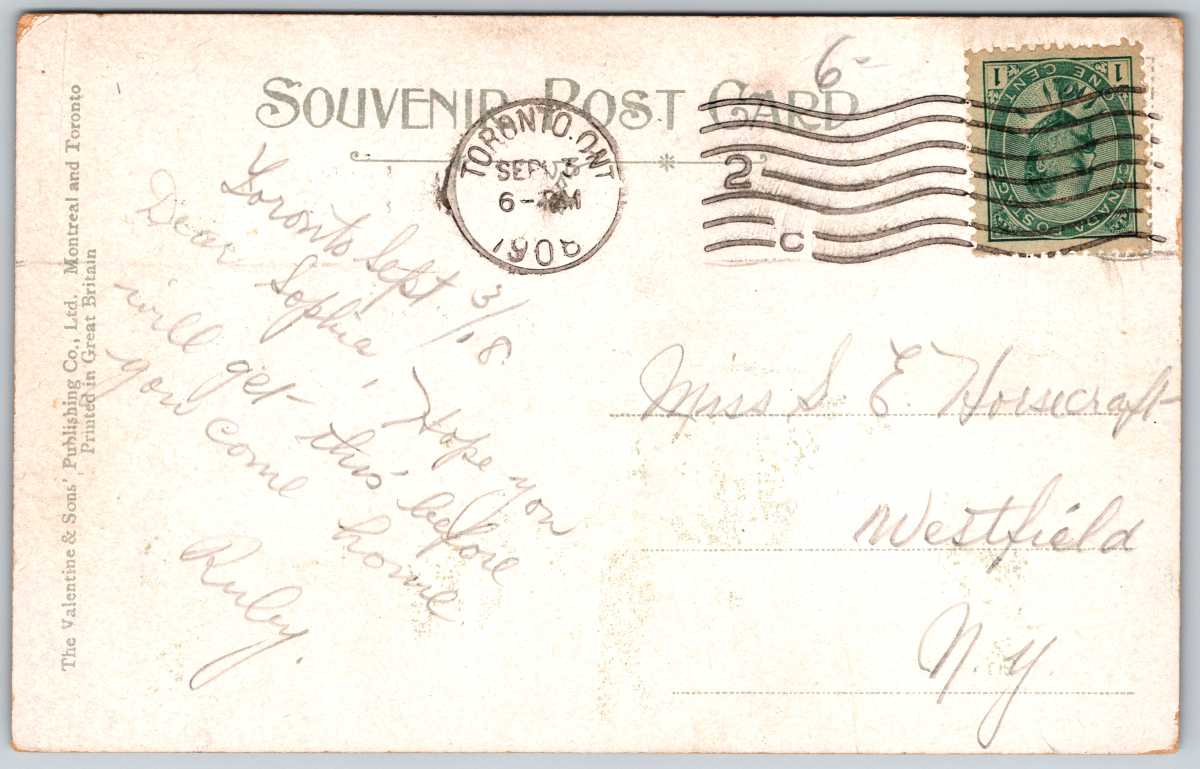 SOUVENIR POST CARD
6-
TORONTO. ONT
SEP 3
6-
1908
2
C
1 1
ONE CENT
CANADA POSTAGE
Toronto Sept. 3/'8.
Dear Sophia,
Hope you
will get this before
you come home
Ruby.
Miss S E Housecraft
Westfield
N.Y.
The Valentine & Sons' Publishing Co., Ltd. Montreal and Toronto
Printed in Great Britain